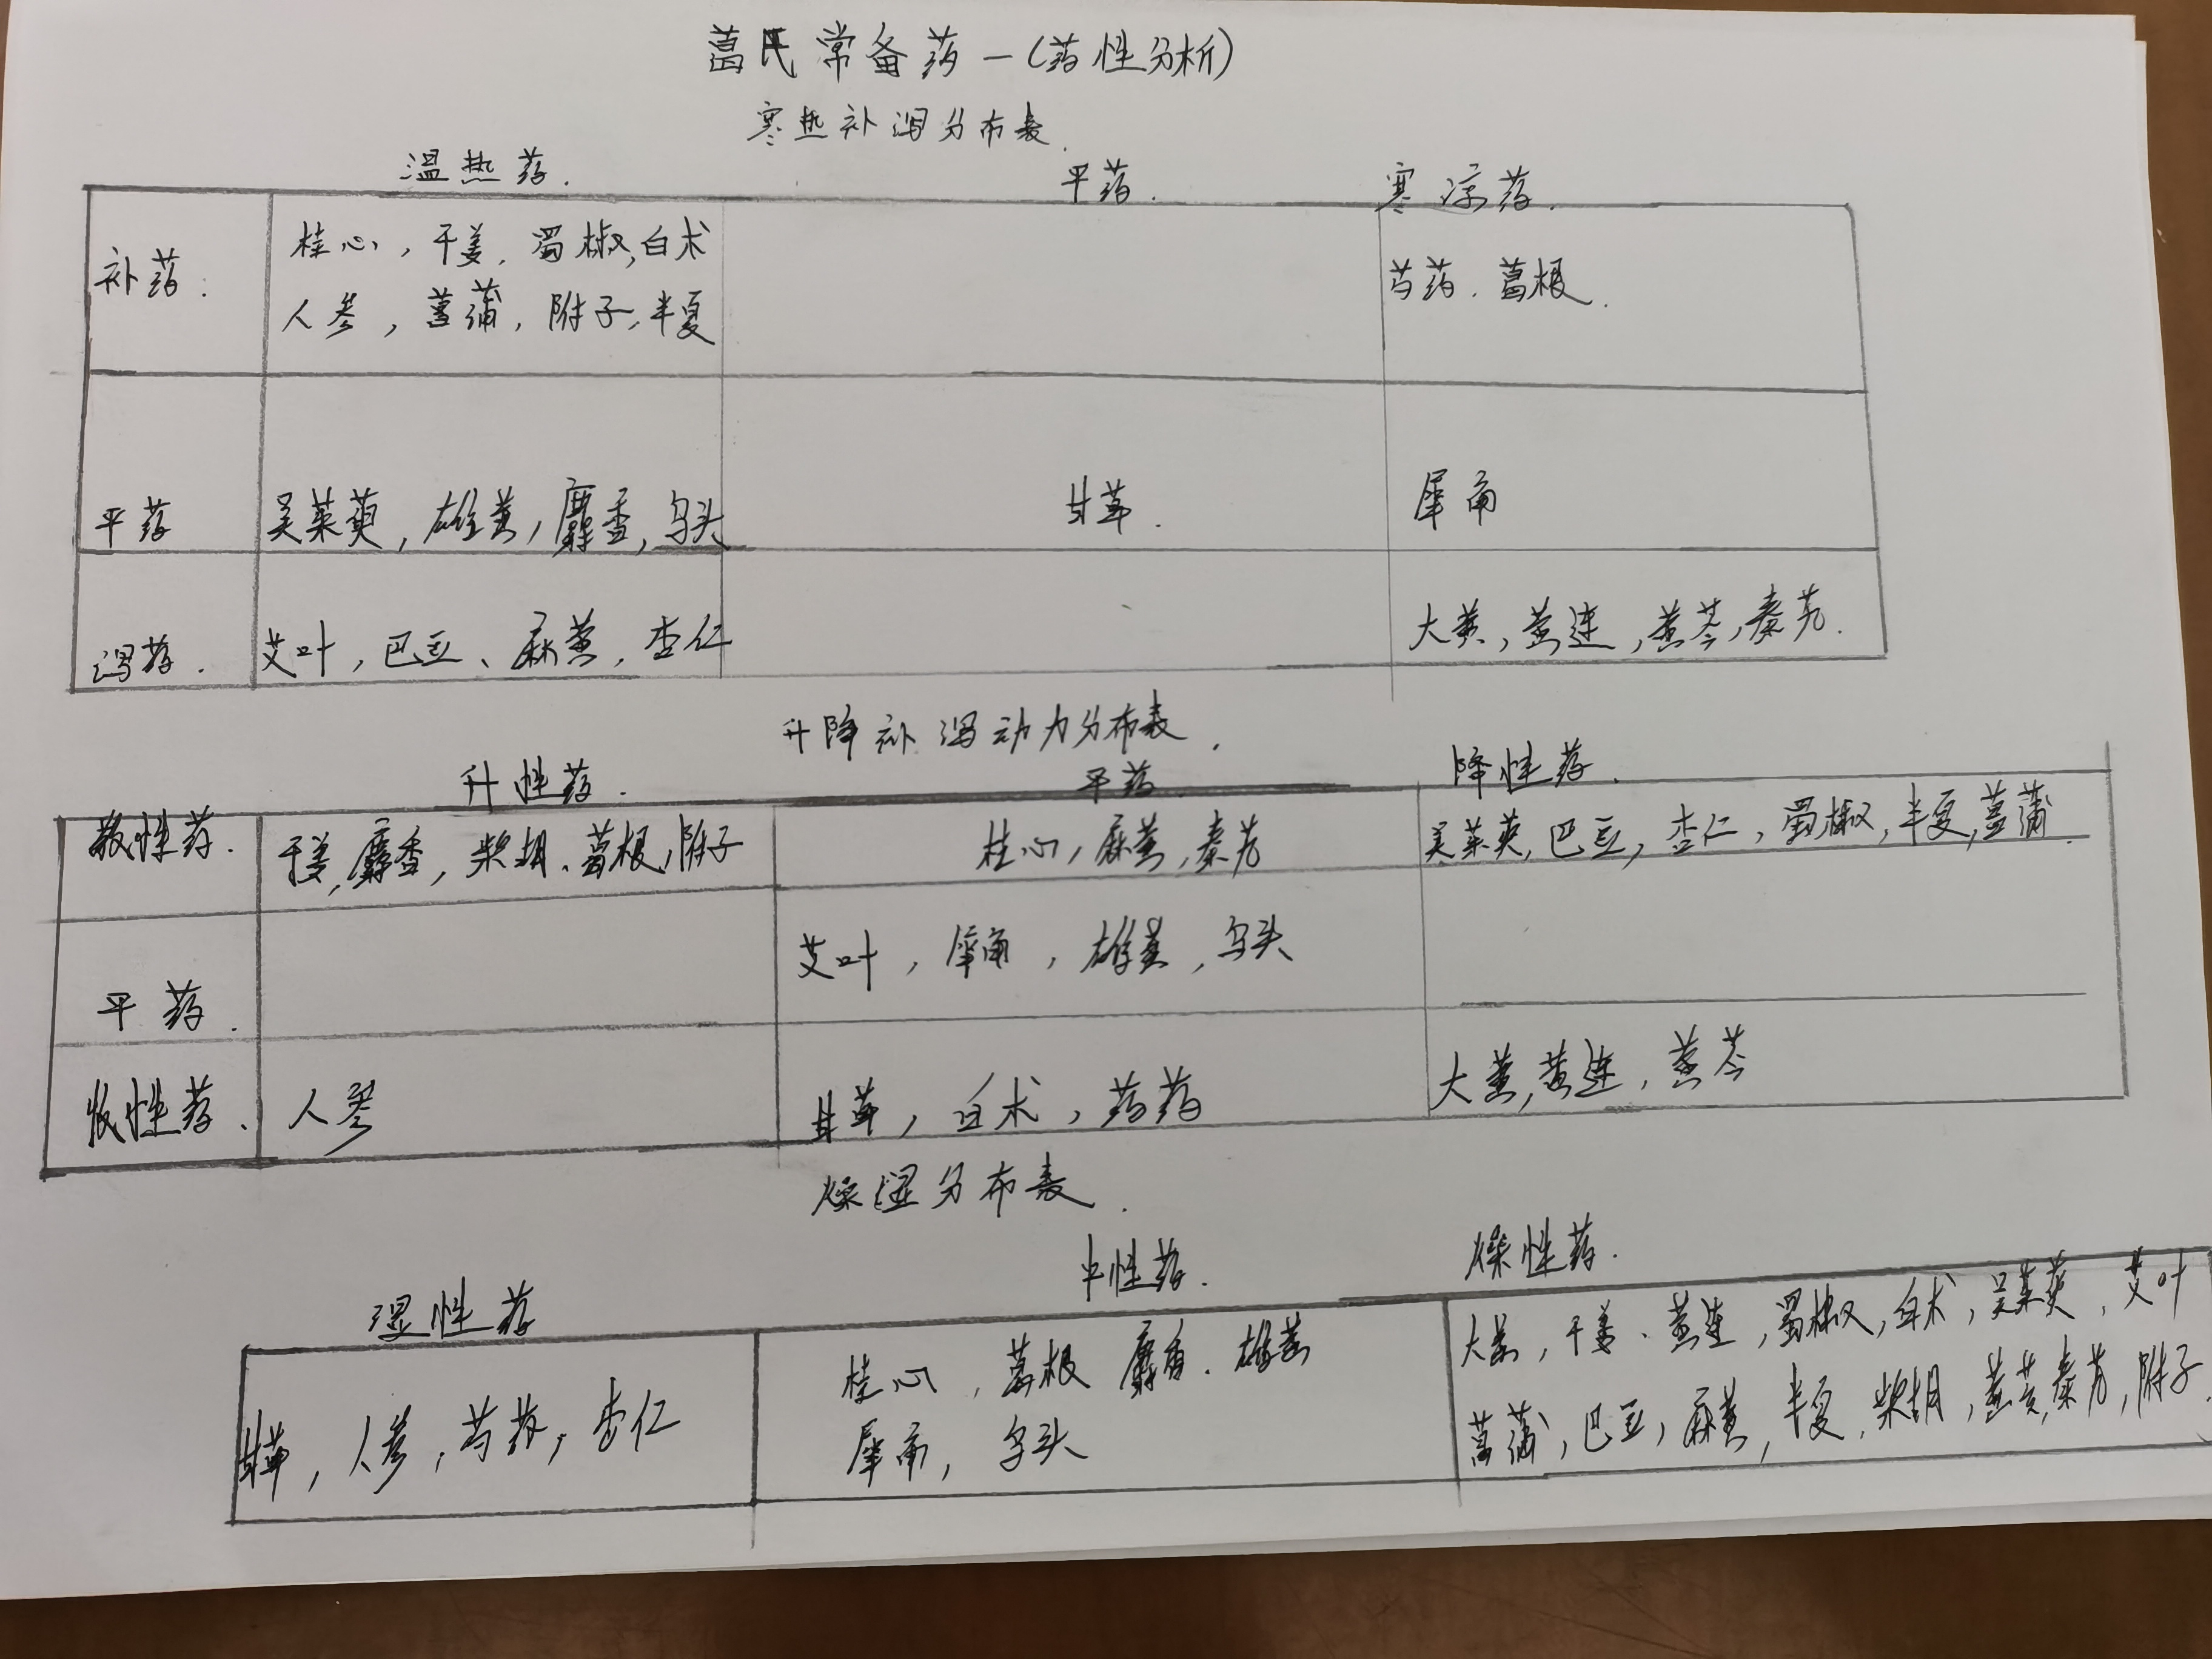 葛氏常备药—(药性分析)
寒热补泻分布表.
温热药. 平药. 寒凉药.
补药. 桂心, 干姜, 蜀椒, 白术 芍药. 葛根.
人参, 菖蒲, 附子, 半夏
平药 吴茱萸, 雄黄, 麝香, 乌头 甘草. 犀角
泻药. 艾叶, 巴豆、麻黄, 杏仁 大黄, 黄连, 黄芩, 秦艽.
升降补泻动力分布表.
升性药. 平药. 降性药.
散性药. 干姜, 麝香, 柴胡、葛根, 附子 桂心, 麻黄, 秦艽 吴茱萸, 巴豆, 杏仁, 蜀椒, 半夏, 菖蒲.
平药. 艾叶, 犀角, 雄黄, 乌头
收性药. 人参 甘草, 白术, 芍药 大黄, 黄连, 黄芩
燥湿分布表.
湿性药 中性药. 燥性药.
甘草, 人参, 芍药, 杏仁 桂心, 葛根 麝香. 雄黄 大黄, 干姜、黄连, 蜀椒, 白术, 吴茱萸, 艾叶
犀角, 乌头 菖蒲, 巴豆, 麻黄, 半夏, 柴胡, 黄芩, 秦艽, 附子.